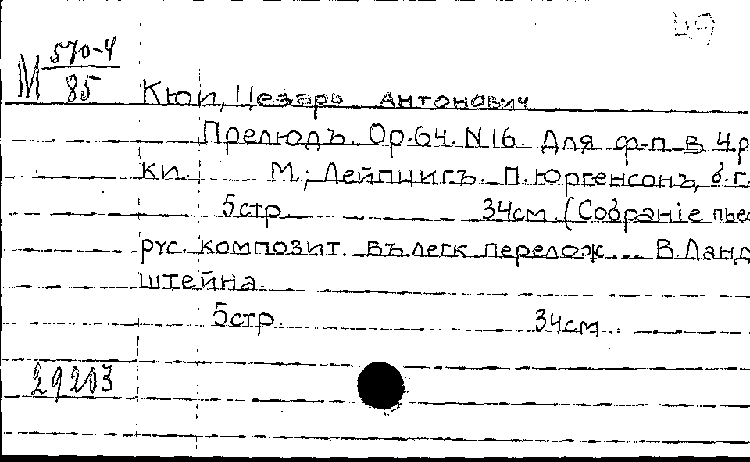 49
М 570-4
85
Кюи, Цезарь Антонович
Прелюдъ. Op.64. N16. Для ф-п. в 4 р
ки. М.; Лейпцигъ. П. Юргенсонъ, б.г.
5стр. 34см. (Собранiе пьес
рус. композит. въ легк перелож. В. Ланд
штейна.
5стр. 34см.
29203